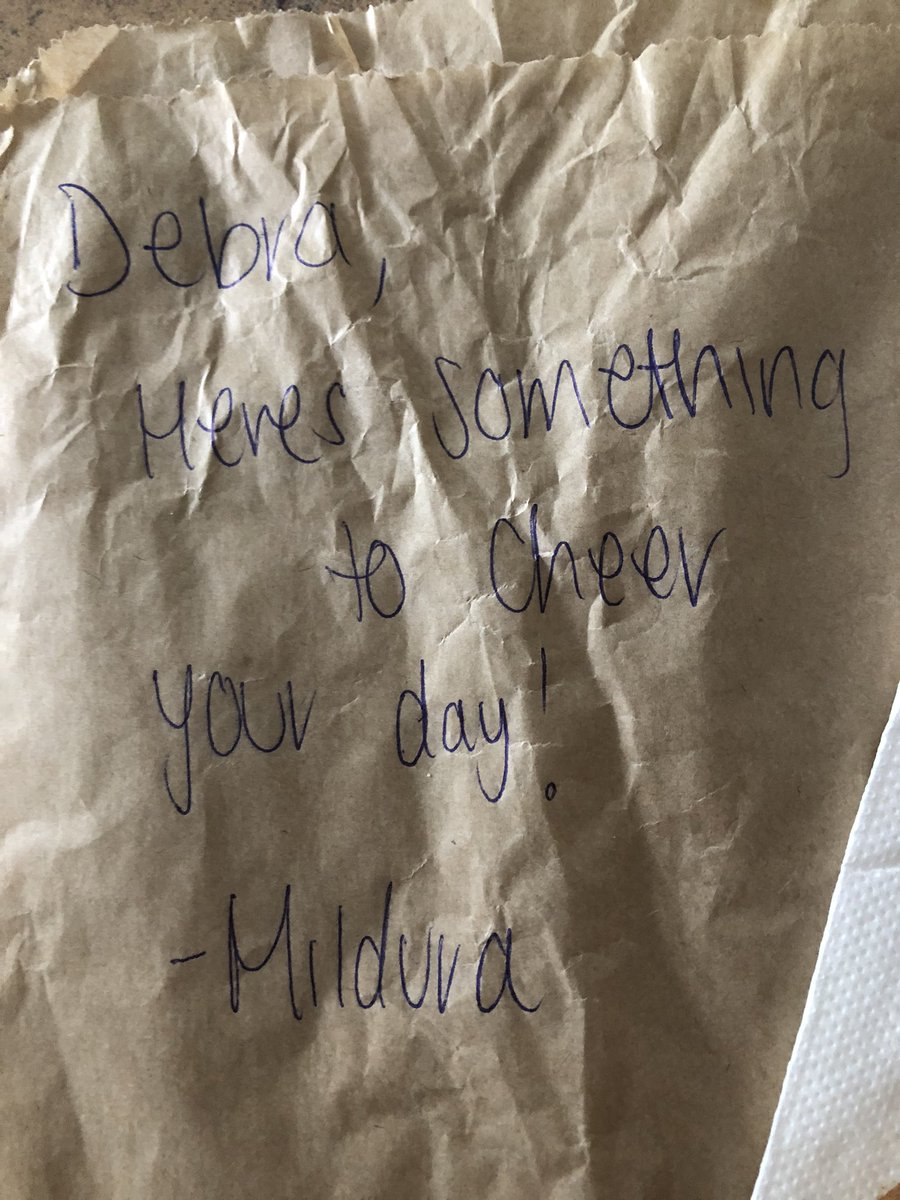 Debra,
Heres something
to cheer
your day!
-Mildura